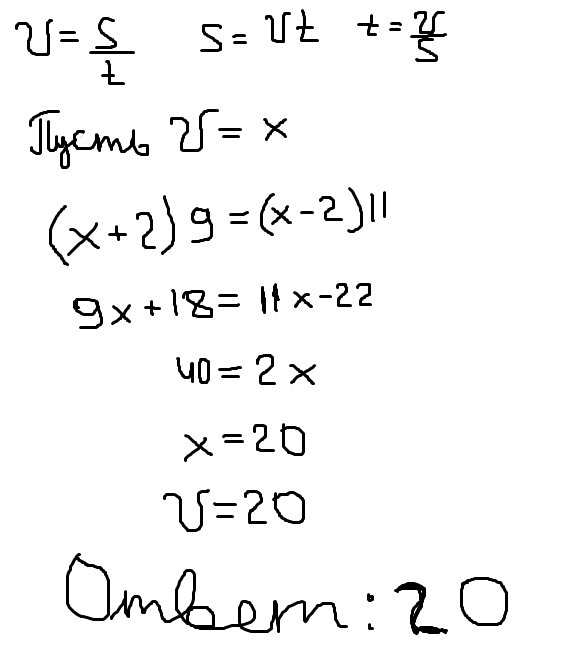 v = s/t   s = vt   t = v/s
Пусть v = x
(x+2)9 = (x-2)11
9x+18 = 11x-22
40 = 2x
x = 20
v = 20
Ответ: 20